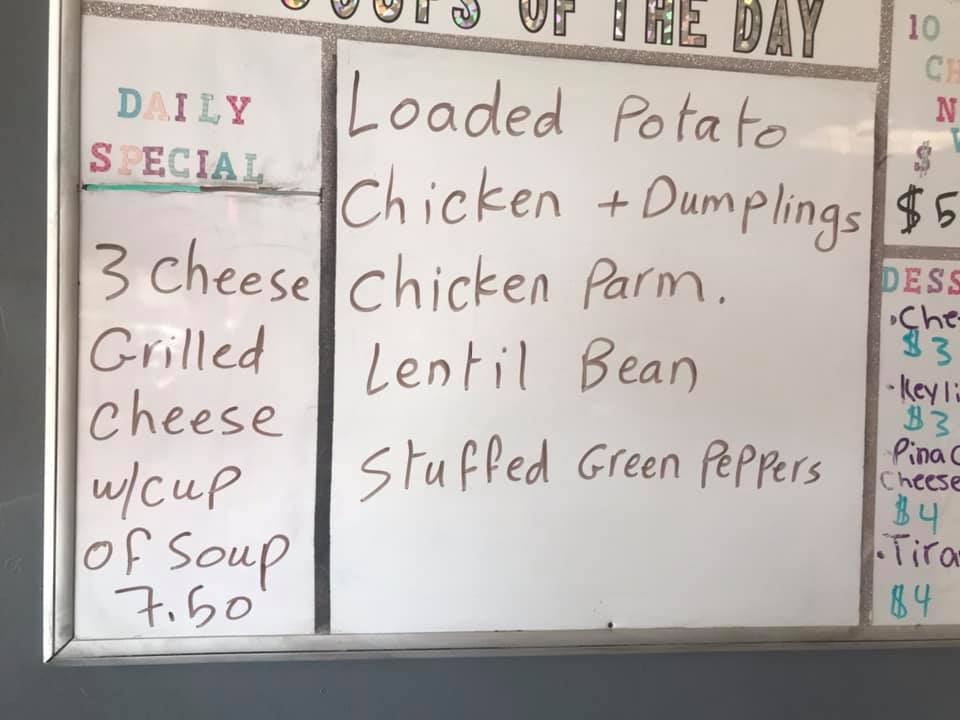 SOUPS OF THE DAY
DAILY
SPECIAL
3 cheese
Grilled
cheese
w/cup
of Soup
7.50
Loaded Potato
Chicken + Dumplings
Chicken Parm.
Lentil Bean
Stuffed Green Peppers
10
CH
N
$
$5
DESS
•Che
$3
•Keyli
$3
•Pina C
Cheese
$4
•Tira
$4